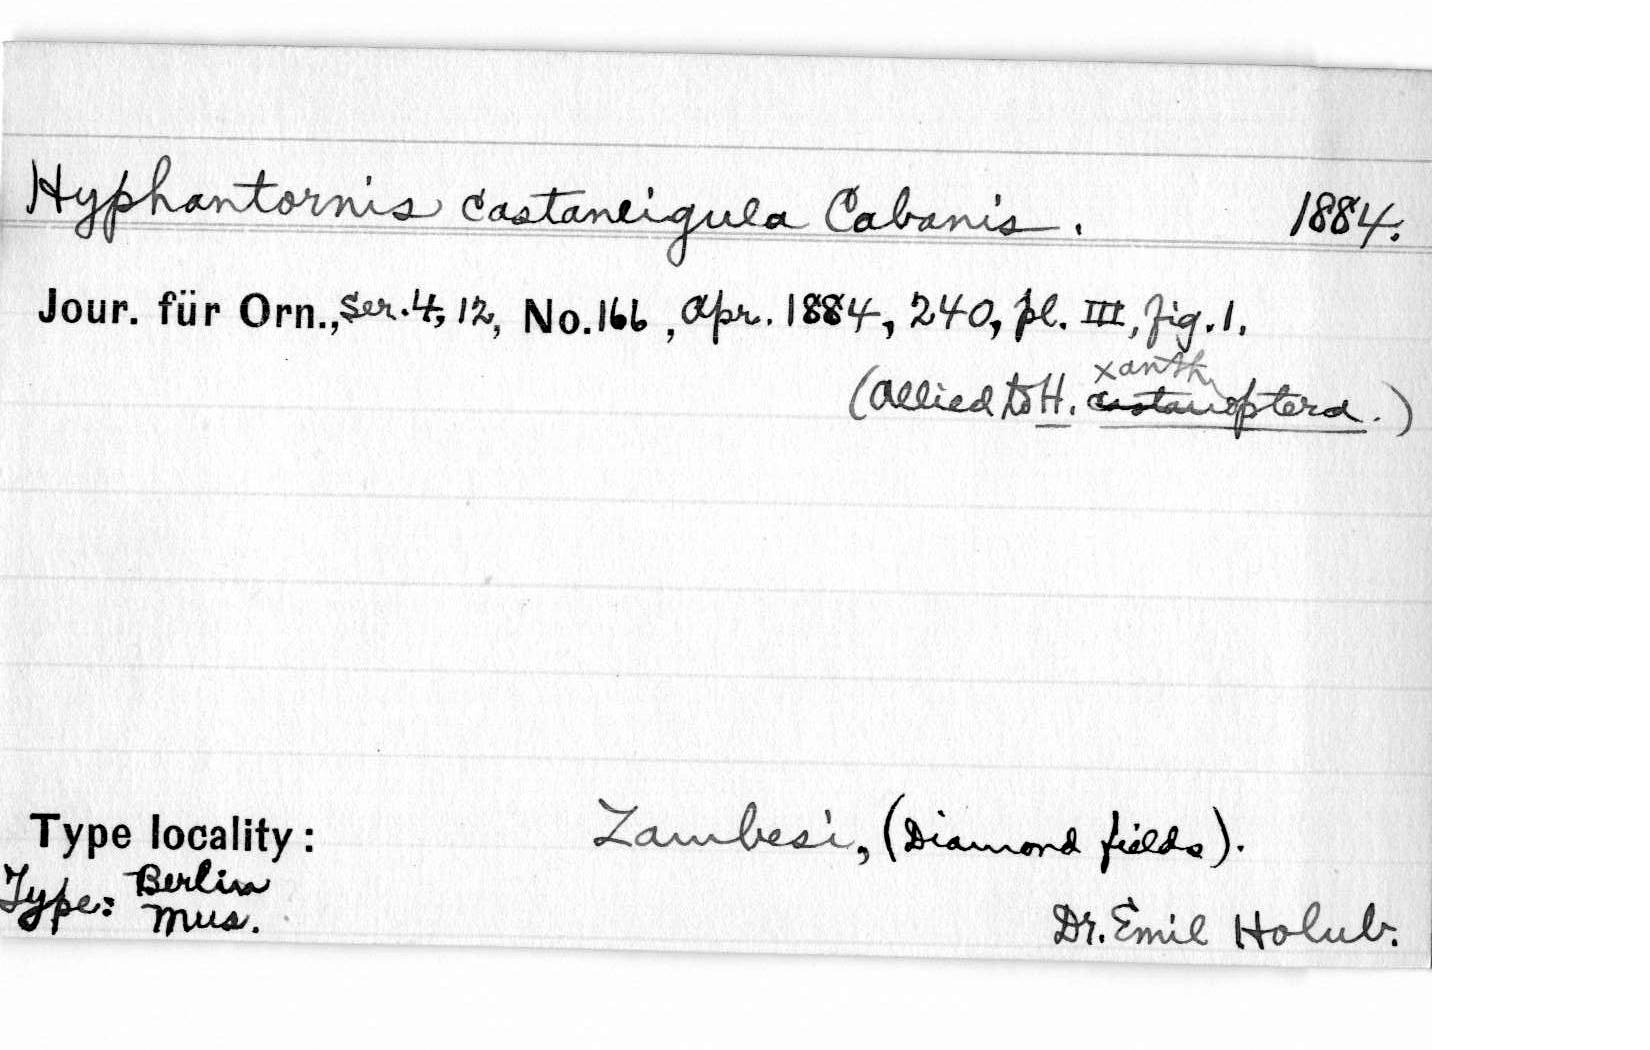 Hyphantornis castaneigula Cabanis. 1884.
Jour. für Orn., Ser. 4, 12, No. 166, Apr. 1884, 240, pl. III, fig. 1.
xanth
(Allied to H. castanoptera.)
Type locality: Zambesi, (Diamond fields).
Type: Berlin
Mus.
Dr. Emil Holub.